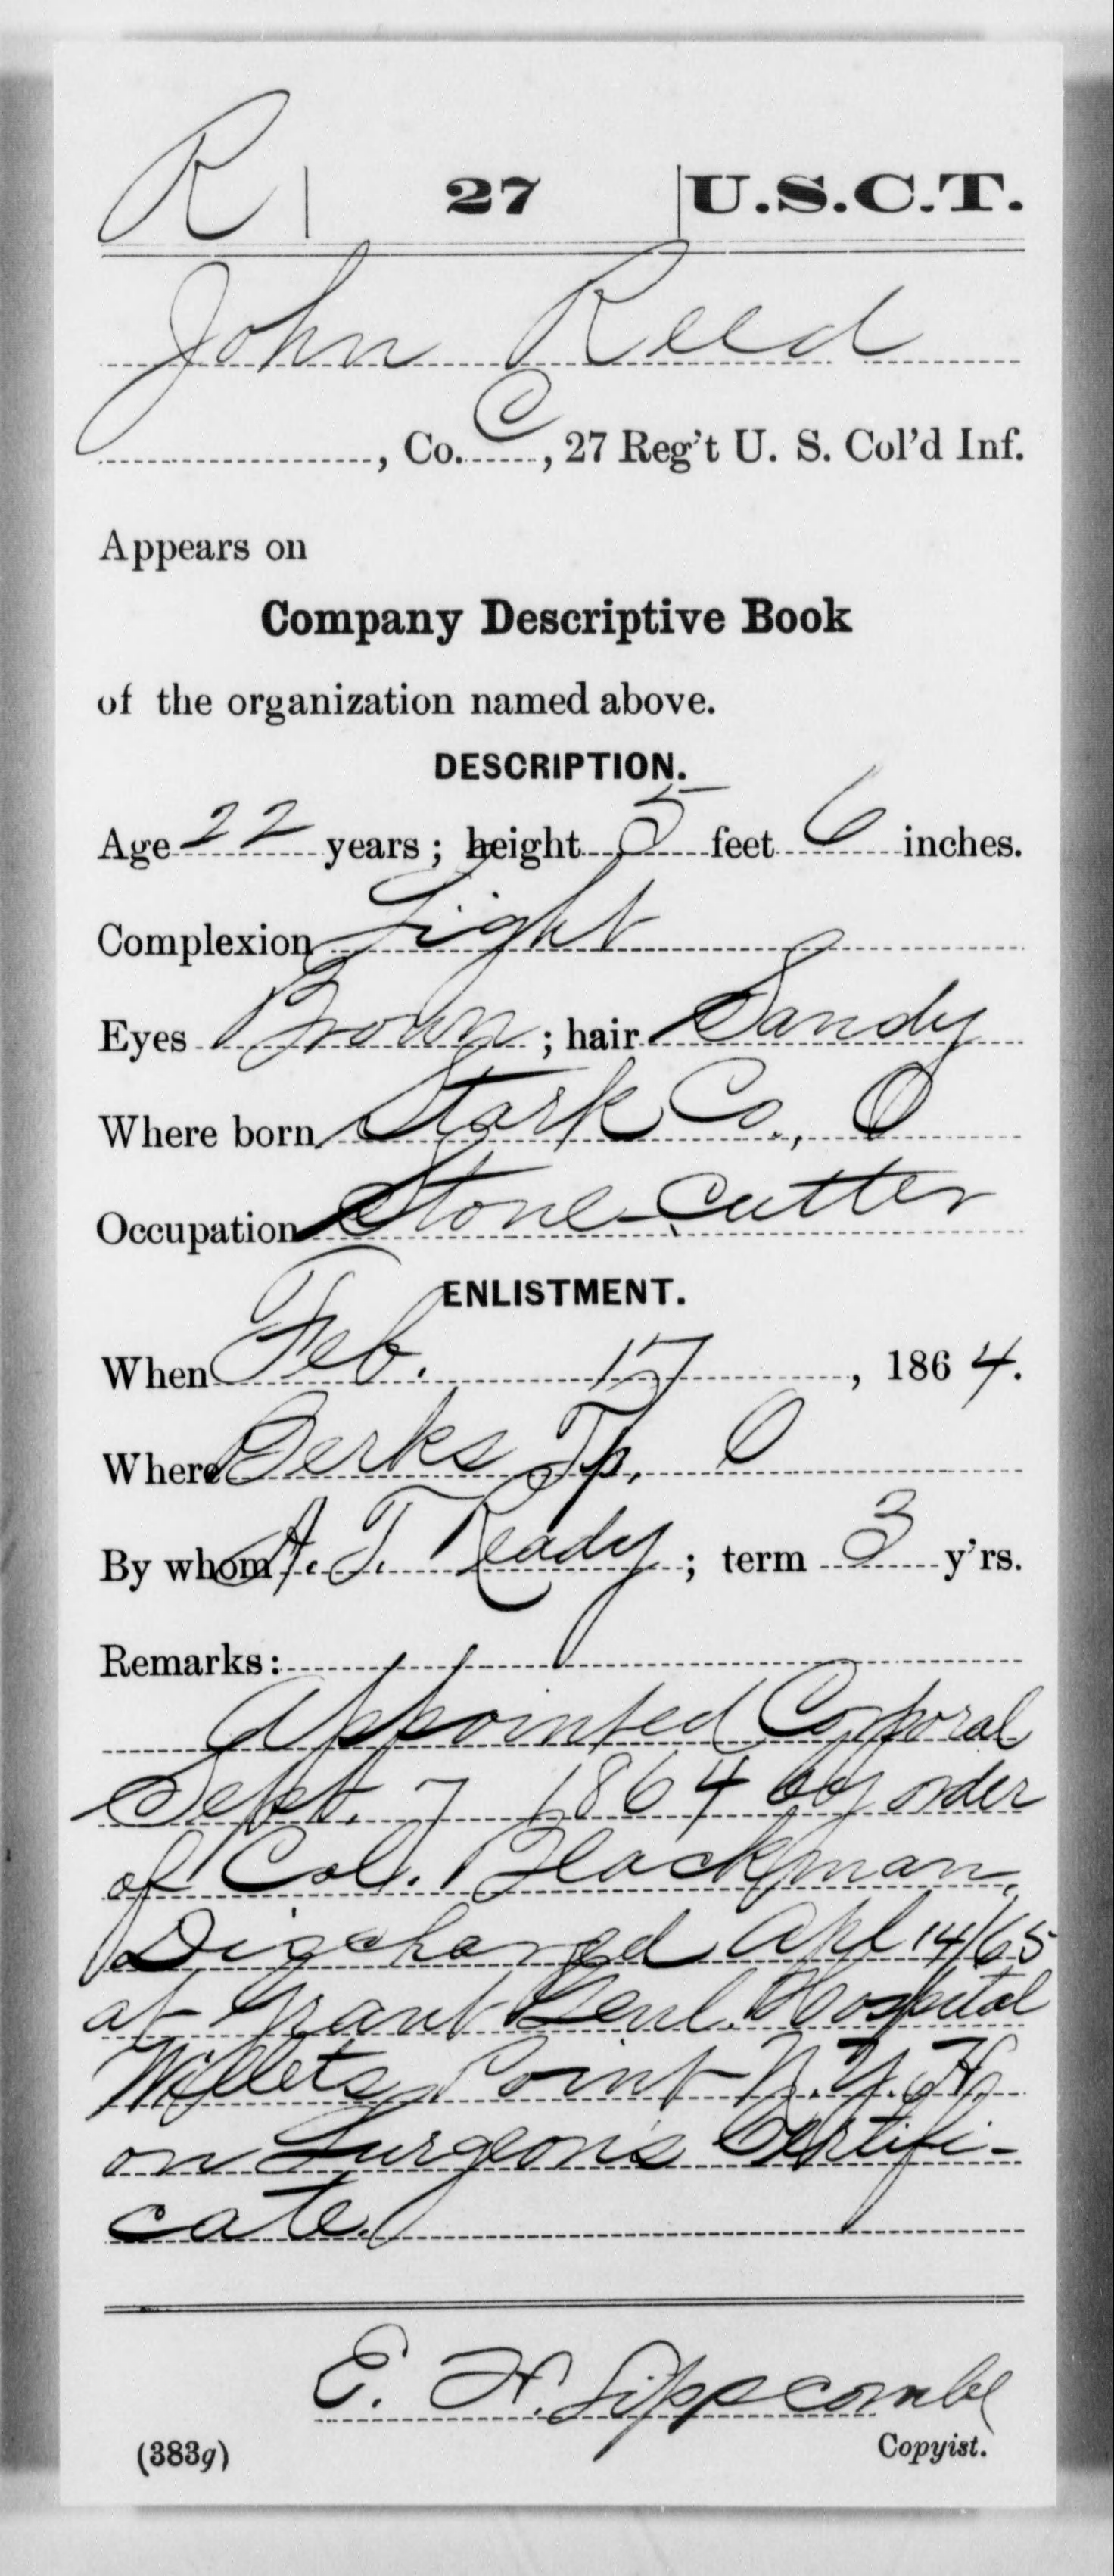 R | 27 | U.S.C.T.
John Reed
, Co. C, 27 Reg't U. S. Col'd Inf.
Appears on
Company Descriptive Book
of the organization named above.
DESCRIPTION.
Age 22 years; height 5 feet 6 inches.
Complexion Light
Eyes Brown; hair Sandy
Where born Stark Co., O
Occupation Stone-Cutter
ENLISTMENT.
When Feb. 17, 1864.
Where Berks Tp. O
By whom A. T. Ready; term 3 y'rs.
Remarks:
Appointed Corporal
Sept. 7 1864 by order
of Col. Blackman,
Discharged Apl 14/65
at Grant Genl. Hospital
Willets Point N.Y. H
on Surgeon's Certifi-
cate.
E. H. Lippscombe
Copyist.
(383g)